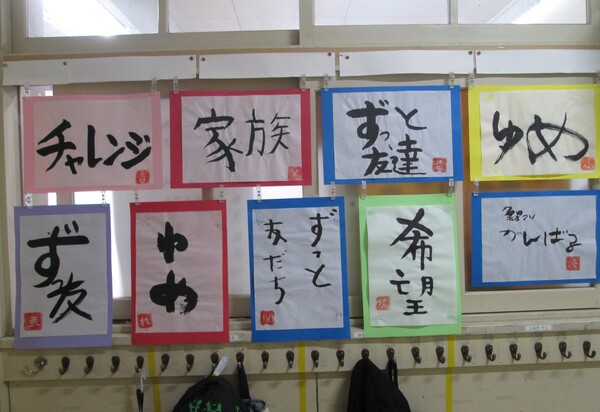 チャレンジ
家族
ずっと
友達
ゆめ
ず友
ゆめ
ずっと
友だち
希望
がんばる